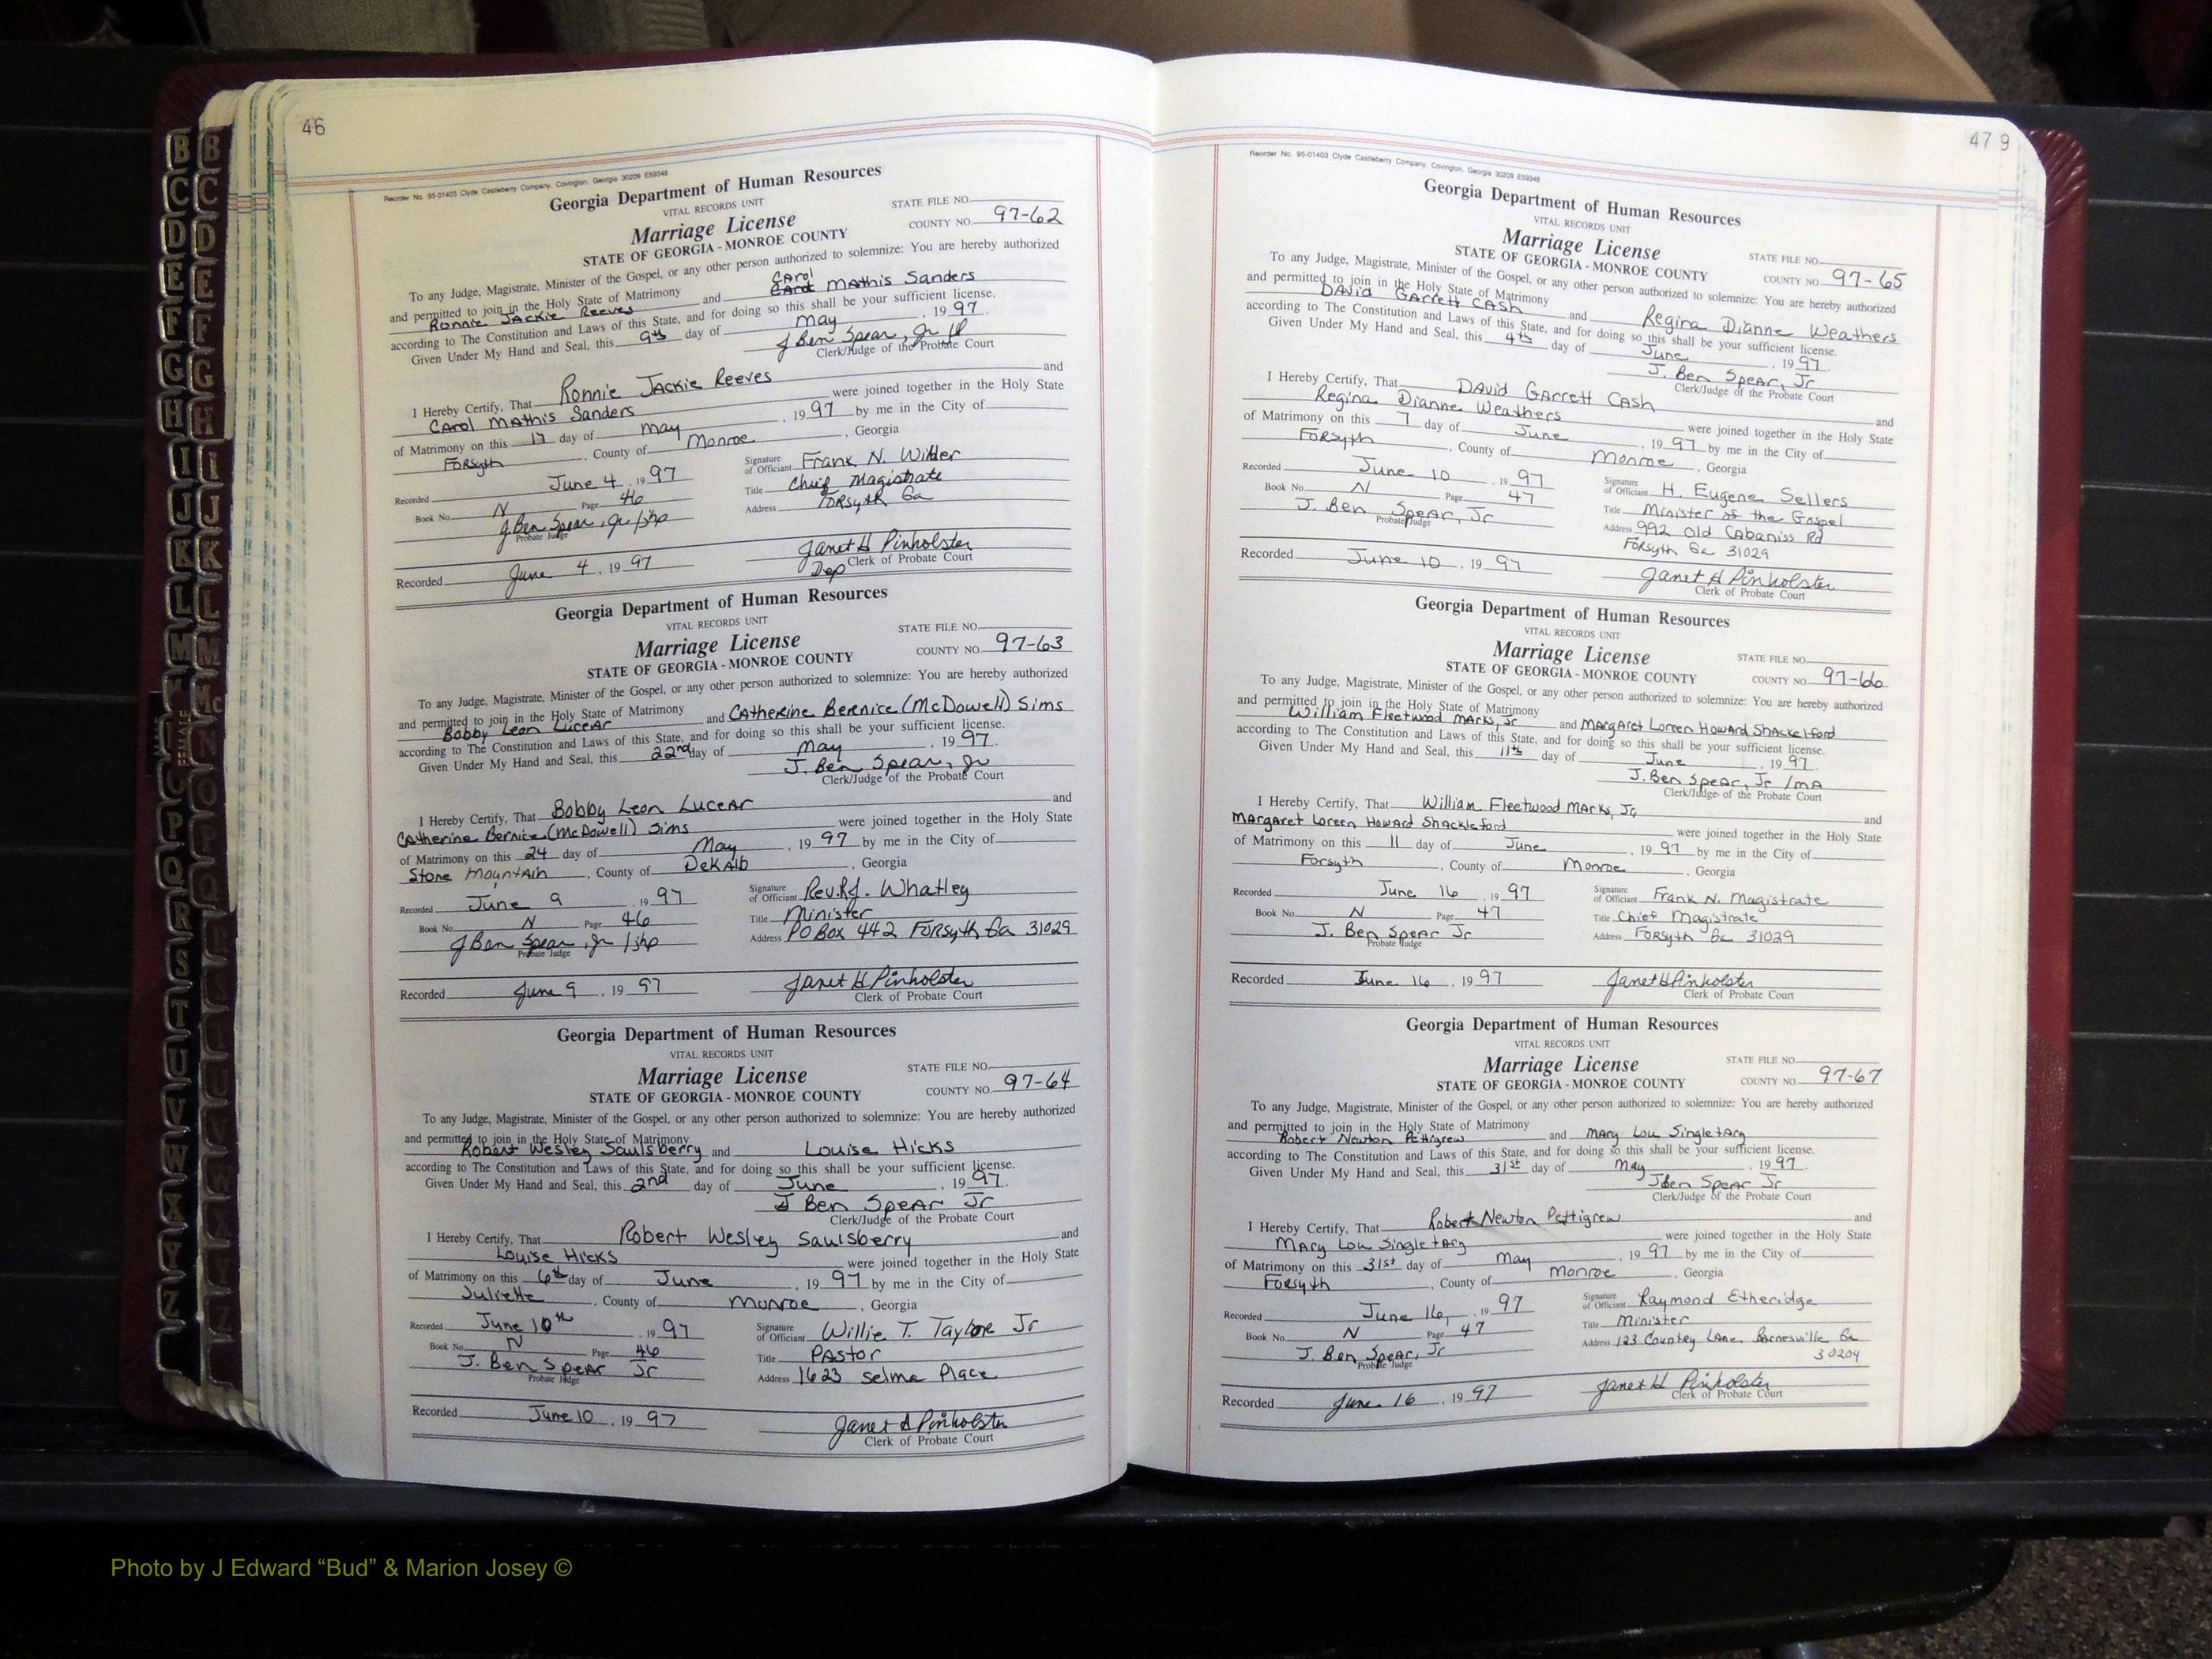 46
Reorder No. 95-01403 Clyde Castleberry Company, Covington, Georgia 30209 E59348
Georgia Department of Human Resources
VITAL RECORDS UNIT
Marriage License
STATE FILE NO.
STATE OF GEORGIA - MONROE COUNTY
COUNTY NO. 97-62
To any Judge, Magistrate, Minister of the Gospel, or any other person authorized to solemnize: You are hereby authorized
and permitted to join in the Holy State of Matrimony
Carol
Ronnie Jackie Reeves and Carol Mathis Sanders
according to The Constitution and Laws of this State, and for doing so this shall be your sufficient license.
Given Under My Hand and Seal, this 9th day of May, 1997.
J Ben Spear, Jr
Clerk/Judge of the Probate Court
I Hereby Certify, That Ronnie Jackie Reeves and
Carol Mathis Sanders were joined together in the Holy State
of Matrimony on this 17 day of May, 1997 by me in the City of
Forsyth, County of Monroe, Georgia
Recorded June 4, 1997
Signature of Officiant Frank N. Wilder
Book No. N Page 46
Title Chief Magistrate
J Ben Spear, Jr/shp
Probate Judge
Address Forsyth Ga
Recorded June 4, 1997
Janet H Pinholster
Dep Clerk of Probate Court
Georgia Department of Human Resources
VITAL RECORDS UNIT
Marriage License
STATE FILE NO.
STATE OF GEORGIA - MONROE COUNTY
COUNTY NO. 97-63
To any Judge, Magistrate, Minister of the Gospel, or any other person authorized to solemnize: You are hereby authorized
and permitted to join in the Holy State of Matrimony
Bobby Leon Lucear and Catherine Bernice (McDowell) Sims
according to The Constitution and Laws of this State, and for doing so this shall be your sufficient license.
Given Under My Hand and Seal, this 22nd day of May, 1997.
J. Ben Spear, Jr
Clerk/Judge of the Probate Court
I Hereby Certify, That Bobby Leon Lucear and
Catherine Bernice (McDowell) Sims were joined together in the Holy State
of Matrimony on this 24 day of May, 1997 by me in the City of
Stone Mountain, County of DeKalb, Georgia
Recorded June 9, 1997
Signature of Officiant Rev. R.J. Whatley
Book No. N Page 46
Title Minister
J Ben Spear, Jr /shp
Probate Judge
Address PO Box 442 Forsyth Ga 31029
Recorded June 9, 1997
Janet H Pinholster
Clerk of Probate Court
Georgia Department of Human Resources
VITAL RECORDS UNIT
Marriage License
STATE FILE NO.
STATE OF GEORGIA - MONROE COUNTY
COUNTY NO. 97-64
To any Judge, Magistrate, Minister of the Gospel, or any other person authorized to solemnize: You are hereby authorized
and permitted to join in the Holy State of Matrimony
Robert Wesley Saulsberry and Louise Hicks
according to The Constitution and Laws of this State, and for doing so this shall be your sufficient license.
Given Under My Hand and Seal, this 2nd day of June, 1997.
J Ben Spear Jr
Clerk/Judge of the Probate Court
I Hereby Certify, That Robert Wesley Saulsberry and
Louise Hicks were joined together in the Holy State
of Matrimony on this 6th day of June, 1997 by me in the City of
Juliette, County of Monroe, Georgia
Recorded June 10th, 1997
Signature of Officiant Willie T. Taylor Jr
Book No. N Page 46
Title Pastor
J. Ben Spear Jr
Probate Judge
Address 1623 Selma Place
Recorded June 10, 1997
Janet H Pinholster
Clerk of Probate Court
47 9
Reorder No. 95-01403 Clyde Castleberry Company, Covington, Georgia 30209 E59348
Georgia Department of Human Resources
VITAL RECORDS UNIT
Marriage License
STATE FILE NO.
STATE OF GEORGIA - MONROE COUNTY
COUNTY NO. 97-65
To any Judge, Magistrate, Minister of the Gospel, or any other person authorized to solemnize: You are hereby authorized
and permitted to join in the Holy State of Matrimony
David Garrett Cash and Regina Dianne Weathers
according to The Constitution and Laws of this State, and for doing so this shall be your sufficient license.
Given Under My Hand and Seal, this 4th day of June, 1997.
J. Ben Spear, Jr
Clerk/Judge of the Probate Court
I Hereby Certify, That David Garrett Cash and
Regina Dianne Weathers were joined together in the Holy State
of Matrimony on this 7 day of June, 1997 by me in the City of
Forsyth, County of Monroe, Georgia
Recorded June 10, 1997
Signature of Officiant H. Eugene Sellers
Book No. N Page 47
Title Minister of the Gospel
J. Ben Spear, Jr
Probate Judge
Address 992 Old Cabaniss Rd
Forsyth Ga 31029
Recorded June 10, 1997
Janet H Pinholster
Clerk of Probate Court
Georgia Department of Human Resources
VITAL RECORDS UNIT
Marriage License
STATE FILE NO.
STATE OF GEORGIA - MONROE COUNTY
COUNTY NO. 97-66
To any Judge, Magistrate, Minister of the Gospel, or any other person authorized to solemnize: You are hereby authorized
and permitted to join in the Holy State of Matrimony
William Fleetwood Marks Jr and Margaret Loreen Howard Shackelford
according to The Constitution and Laws of this State, and for doing so this shall be your sufficient license.
Given Under My Hand and Seal, this 11th day of June, 1997.
J. Ben Spear, Jr /mA
Clerk/Judge of the Probate Court
I Hereby Certify, That William Fleetwood Marks, Jr and
Margaret Loreen Howard Shackleford were joined together in the Holy State
of Matrimony on this 11 day of June, 1997 by me in the City of
Forsyth, County of Monroe, Georgia
Recorded June 16, 1997
Signature of Officiant Frank N. Magistrate
Book No. N Page 47
Title Chief Magistrate
J. Ben Spear Jr
Probate Judge
Address Forsyth Ga 31029
Recorded June 16, 1997
Janet H Pinholster
Clerk of Probate Court
Georgia Department of Human Resources
VITAL RECORDS UNIT
Marriage License
STATE FILE NO.
STATE OF GEORGIA - MONROE COUNTY
COUNTY NO. 97-67
To any Judge, Magistrate, Minister of the Gospel, or any other person authorized to solemnize: You are hereby authorized
and permitted to join in the Holy State of Matrimony
Robert Newton Pettigrew and Mary Lou Singletary
according to The Constitution and Laws of this State, and for doing so this shall be your sufficient license.
Given Under My Hand and Seal, this 31st day of May, 1997.
J Ben Spear Jr
Clerk/Judge of the Probate Court
I Hereby Certify, That Robert Newton Pettigrew and
Mary Lou Singletary were joined together in the Holy State
of Matrimony on this 31st day of May, 1997 by me in the City of
Forsyth, County of Monroe, Georgia
Recorded June 16, 1997
Signature of Officiant Raymond Etheridge
Book No. N Page 47
Title Minister
J. Ben Spear, Jr
Probate Judge
Address 123 Country Lane Barnesville Ga
30204
Recorded June 16, 1997
Janet H Pinholster
Clerk of Probate Court
Photo by J Edward “Bud” & Marion Josey ©